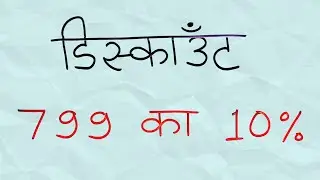 डिस्काउँट
799 का 10%